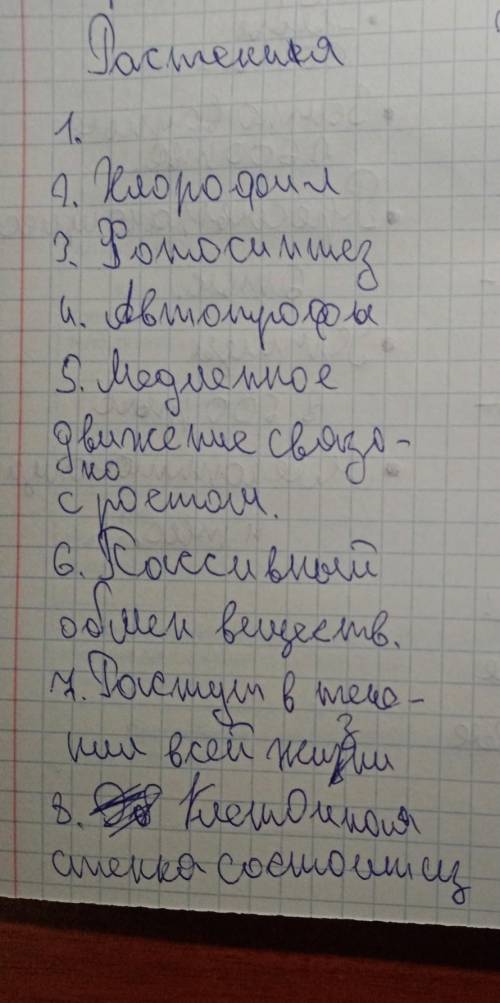 Растения
1.
2. Хлорофил
3. Фотосинтез
4. Автотрофы
5. Медленное
движение связа-
но
с ростом.
6. Пассивный
обмен веществ.
7. Растут в тече-
нии всей жизни
8. Клеточная
стенка состоит из